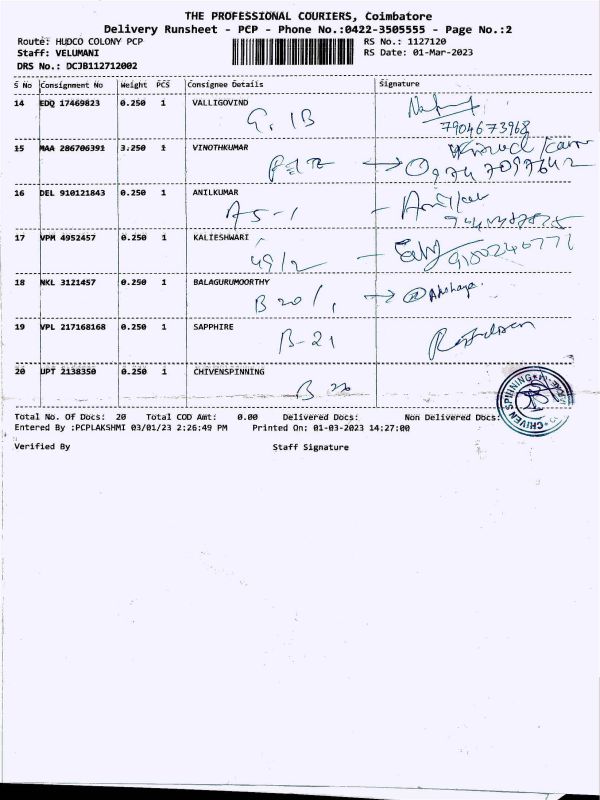 THE PROFESSIONAL COURIERS, Coimbatore
Delivery Runsheet - PCP - Phone No.:0422-3505555 - Page No.:2
Route: HUDCO COLONY PCP RS No.: 1127120
Staff: VELUMANI RS Date: 01-Mar-2023
DRS No.: DCJB112712002
S No Consignment No Weight PCS Consignee Details Signature
14 EDQ 17469823 0.250 1 VALLIGOVIND
G. 1B 7904673968
15 MAA 286706391 3.250 1 VINOTHKUMAR
16 DEL 910121843 0.250 1 ANILKUMAR
A5-1
17 VPM 4952457 0.250 1 KALIESHWARI
49/2 9100240771
18 NKL 3121457 0.250 1 BALAGURUMOORTHY
B 20/1 Akshaya.
19 VPL 217168168 0.250 1 SAPPHIRE
B-21
20 UPT 2138350 0.250 1 CHIVENSPINNING
B 22
CHIVEN SPINNING
Total No. Of Docs: 20 Total COD Amt: 0.00 Delivered Docs: Non Delivered Docs:
Entered By :PCPLAKSHMI 03/01/23 2:26:49 PM Printed On: 01-03-2023 14:27:00
Verified By Staff Signature